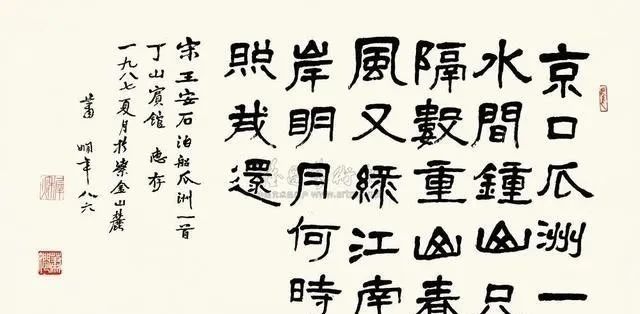 京口瓜洲一
水間鍾山只
隔數重山春
風又綠江南
岸明月何時
照我還
宋王安石泊船瓜洲一首
丁山賓館 惠存
一九八七夏月於紫金山麓
蕭嫻年八六